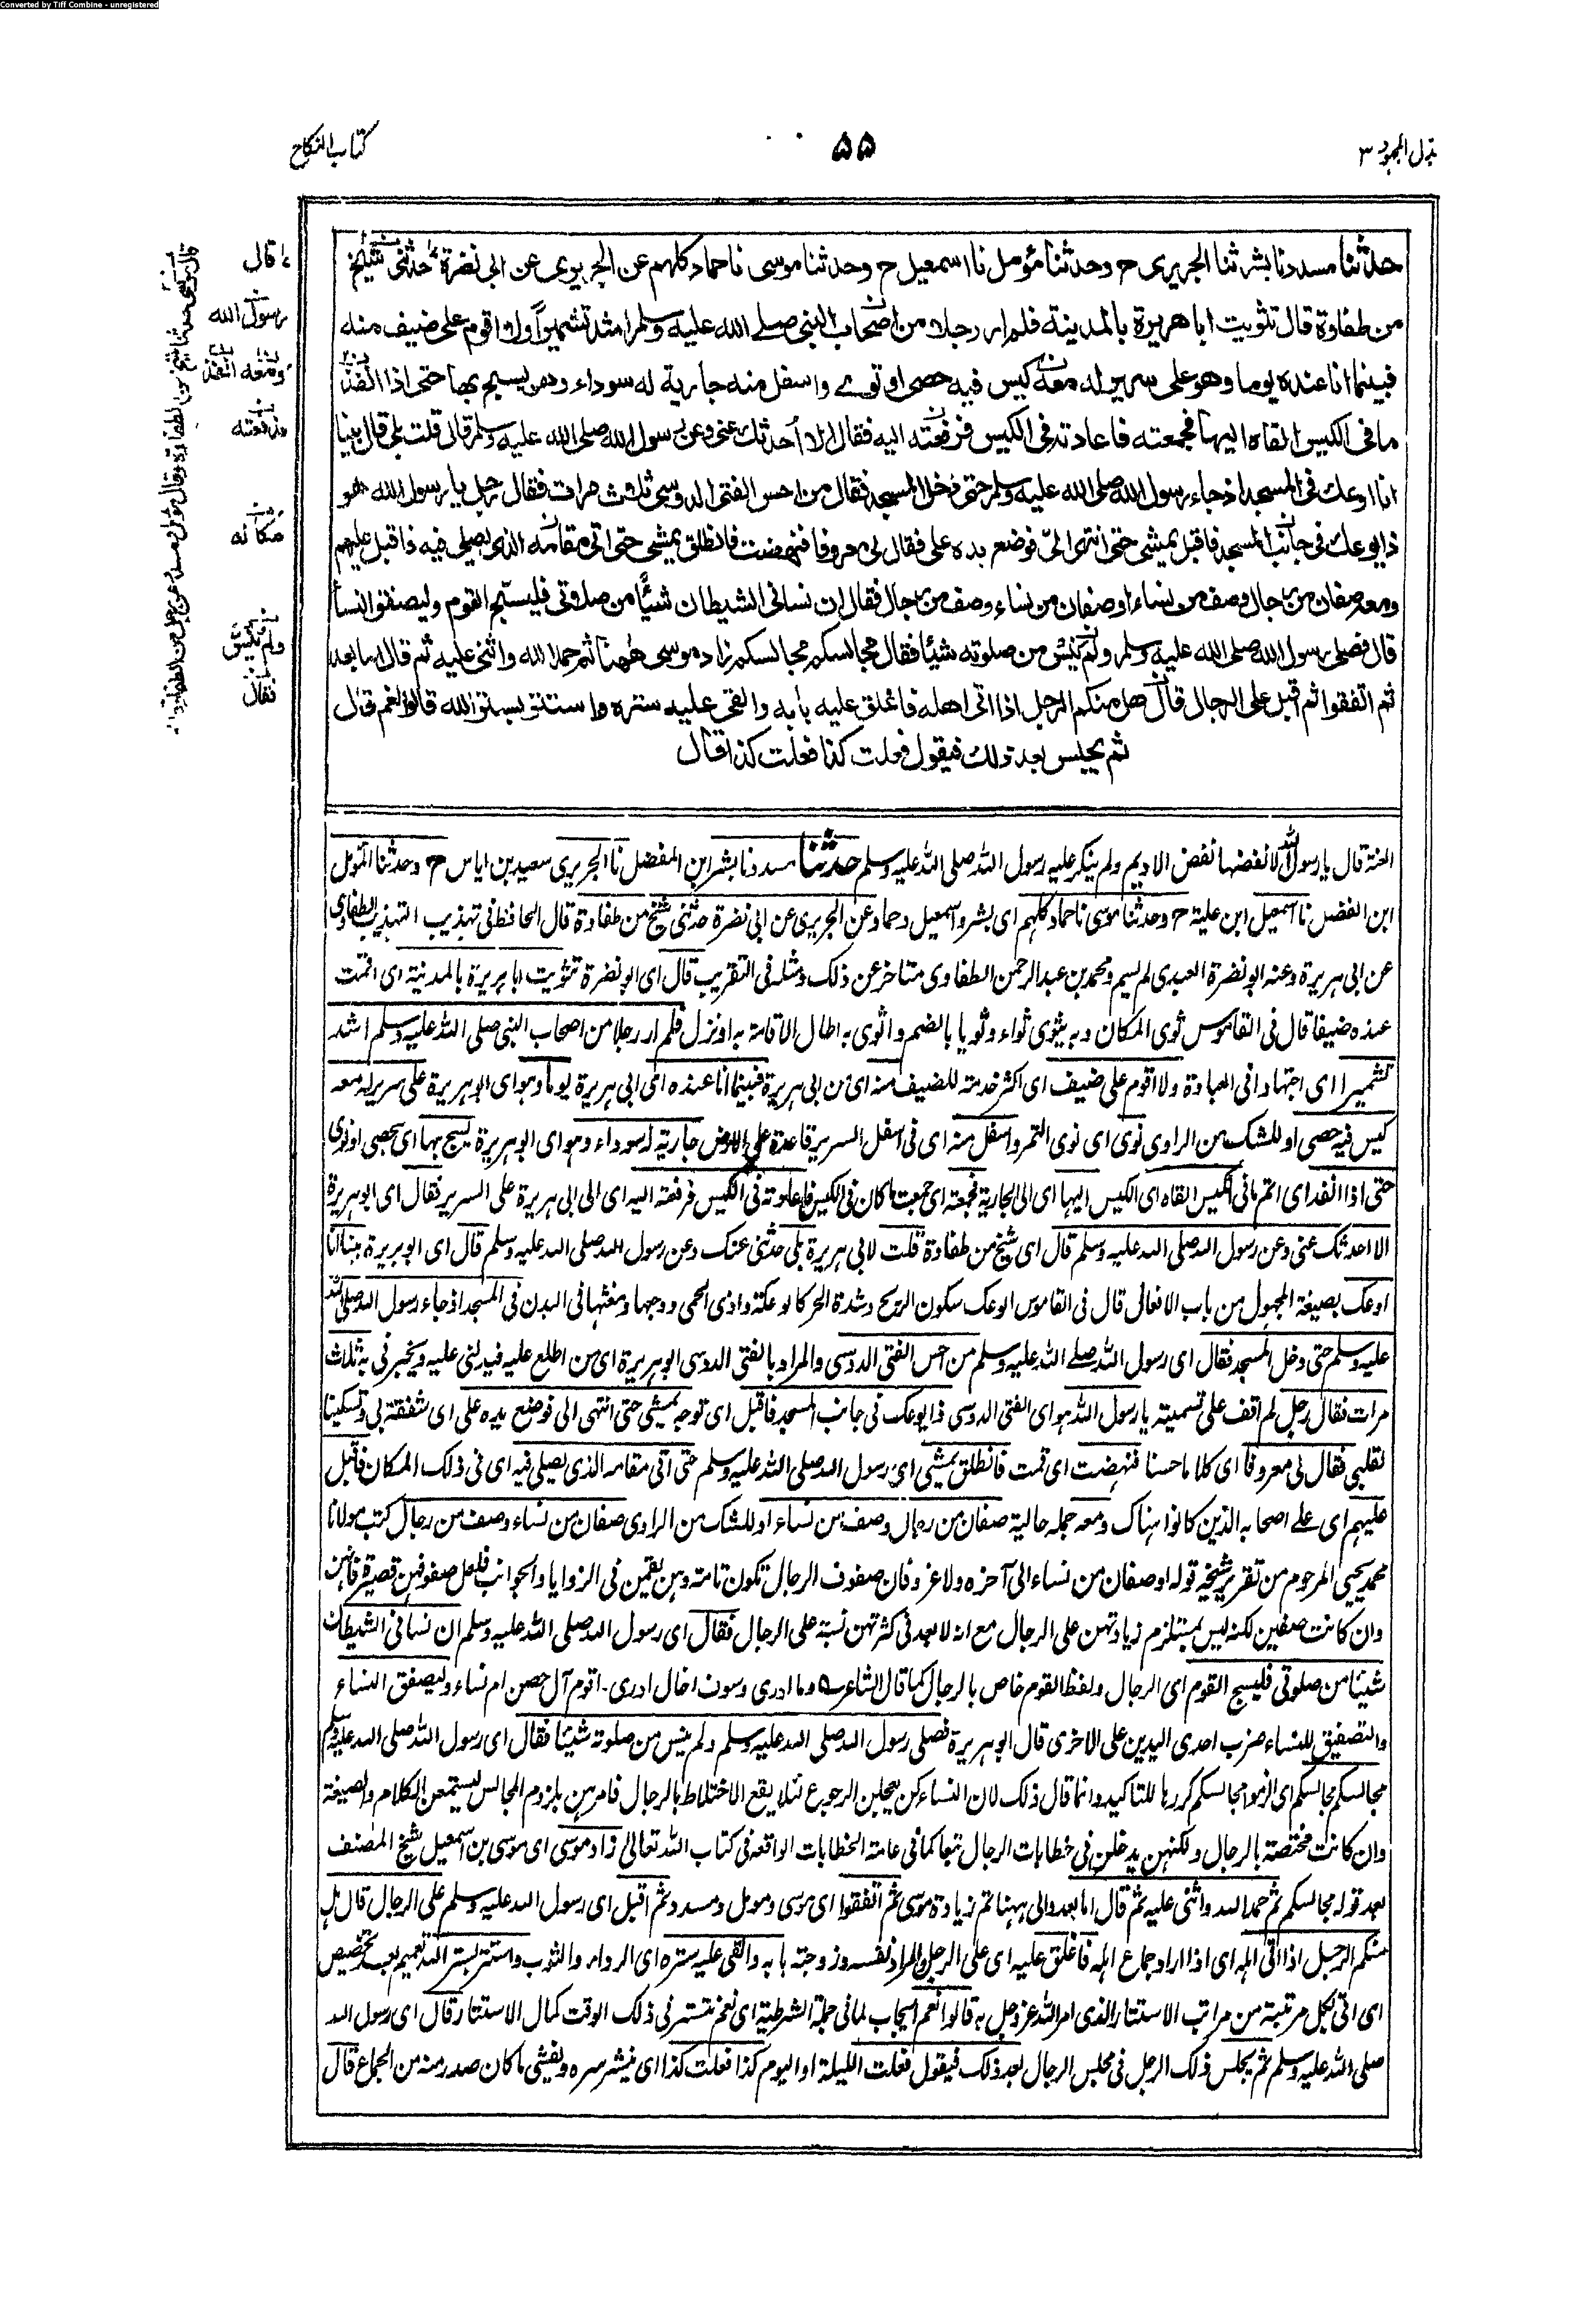 Converted by Tiff Combine - unregistered
بذل المجهود ٣
۵۵
کتاب النکاح
حدثنا مسدد نا بشر ثنا الجریری ح وحدثنا مؤمل نا اسمعیل ح وحدثنا موسی نا حماد کلهم عن الجریری عن ابی نضرة حدثنی شیخ
من طفاوة قال تثویت ابا هریرة بالمدینة فلم ار رجلا من اصحاب النبی صلے الله علیه وسلم اشد تشمیرا ولا اقوم علی ضیف منه
فبینما انا عنده یوما وهو علی سریر له معه کیس فیه حصی او نوے واسفل منه جاریة له سوداء وهو یسبح بها حتی اذا انفذ
ما فی الکیس القاه الیها فجمعته فاعادته فی الکیس فرفعته الیه فقال الا احدثک عنی وعن رسول الله صلی الله علیه وسلم قال قلت بلی قال بینا
انا اوعک فی المسجد اذ جاء رسول الله صلی الله علیه وسلم حتی دخل المسجد فقال من احس الفتی الدوسی ثلث مرات فقال رجل یا رسول الله هو
ذا یوعک فی جانب المسجد فاقبل یمشی حتی انتهی الیّ فوضع یده علی فقال لی معروفا فنهضت فانطلق یمشی حتی اتی مقامه الذی یصلی فیه فاقبل علیهم
ومعه صفان من رجال وصف من نساء او صفان من نساء وصف من رجال فقال ان نسانی الشیطان شیئا من صلوتی فلیسبح القوم ولیصفق النساء
قال فصلی رسول الله صلی الله علیه وسلم ولم ینس من صلوته شیئا فقال مجالسکم مجالسکم زاد موسی ههنا ثم حمد الله واثنی علیه ثم قال اما بعد
ثم اتفقوا ثم اقبل علی الرجال قال هل منکم الرجل اذا اتی اهله فاغلق علیه بابه والقی علیه ستره واستتر بستر الله قالوا نعم قال
ثم یجلس بعد ذلک فیقول فعلت کذا فعلت کذا قال
قال
رسول الله
ومعه انفذ
فدفعته
مکانه
نقال
المنة قال یا رسول الله لا نفضها نفض الادیم ولم ینکر علیه رسول الله صلی الله علیه وسلم حدثنا مسدد نا بشر ابن المفضل نا الجریری سعید بن ایاس ح وحدثنا المؤمل
ابن الفضل نا اسمعیل ابن علیة ح وحدثنا موسی نا حماد کلهم ای بشر واسمعیل وحماد عن الجریری عن ابی نضرة حدثنی شیخ من طفاوة قال الحافظ فی تهذیب التهذیب الطفاوی
عن ابی هریرة وعنه ابو نضرة العبدی لم یسم ومحمد بن عبد الرحمن الطفاوی متاخر عن ذلک ومثله فی التقریب قال ای ابو نضرة تثویت ابا هریرة بالمدینة ای اقمت
عنده ضیفا قال فی القاموس ثوی المکان وبه یثوی ثواء وثویا بالضم واثوی به اطال الاقامة به او نزل فلم ار رجلا من اصحاب النبی صلی الله علیه وسلم اشد
تشمیرا ای اجتهادا فی العبادة ولا اقوم علی ضیف ای اکثر خدمة للضیف منه ای من ابی هریرة فبینما انا عنده ای ابی هریرة یوما وهو ای ابو هریرة علی سریر له معه
کیس فیه حصی او للشک من الراوی نوی ای نوی التمر واسفل منه ای فی اسفل السریر قاعدة علی الارض جاریة له سوداء وهو ای ابو هریرة یسبح بها ای بحصی او نوی
حتی اذا انفد ای اتم ما فی الکیس القاه ای الکیس الیها ای الی الجاریة فجمعته ای جمعت ما کان فی الکیس فاعادته فی الکیس فرفعته الیه ای الی ابی هریرة علی السریر فقال ای ابو هریرة
الا احدثک عنی وعن رسول الله صلی الله علیه وسلم قال ای شیخ من طفاوة قلت لابی هریرة بلی حدثنی عنک وعن رسول الله صلی الله علیه وسلم قال ای ابو هریرة بینا انا
اوعک بصیغة المجهول من باب الافعال قال فی القاموس الوعک سکون الریح وشدة الحر کالوعکة واذی الحمی ووجعها ومغثها فی البدن فی المسجد اذ جاء رسول الله صلی الله
علیه وسلم حتی دخل المسجد فقال ای رسول الله صلے الله علیه وسلم من احس الفتی الدوسی والمراد بالفتی الدوسی ابو هریرة ای من اطلع علیه فیدلنی علیه ویخبرنی به ثلاث
مرات فقال رجل لم اقف علی تسمیته یا رسول الله هو ای الفتی الدوسی ذا یوعک فی جانب المسجد فاقبل ای توجه یمشی حتی انتهی الی فوضع یده علی ای شفقة بی وتسکینا
لقلبی فقال لی معروفا ای کلاما حسنا فنهضت ای قمت فانطلق یمشی ای رسول الله صلی الله علیه وسلم حتی اتی مقامه الذی یصلی فیه ای فی ذلک المکان فاقبل
علیهم ای علے اصحابه الذین کانوا هناک ومعه جملة حالیة صفان من رجال وصف من نساء او للشک من الراوی صفان من نساء وصف من رجال کتب مولانا
محمد یحیی المرحوم من تقریر شیخه قوله او صفان من نساء الی آخره ولا غرو فان صفوف الرجال تکون تامة وهن یقمن فی الزوایا والجوانب فلعل صفوفهن قصیرة فانهن
وان کانت صفین لکنه لیس بمستلزم زیادتهن علی الرجال مع انه لا بعد فی کثرتهن نسبة علی الرجال فقال ای رسول الله صلی الله علیه وسلم ان نسانی الشیطان
شیئا من صلوتی فلیسبح القوم ای الرجال ولفظ القوم خاص بالرجال کما قال الشاعر وما ادری وسوف اخال ادری - اقوم آل حصن ام نساء ولیصفق النساء
والتصفیق للنساء ضرب احدی الیدین علی الاخری قال ابو هریرة فصلی رسول الله صلی الله علیه وسلم ولم ینس من صلوته شیئا فقال ای رسول الله صلی الله علیه وسلم
مجالسکم مجالسکم ای الزموا مجالسکم کررها للتاکید وانما قال ذلک لان النساء کن یعجلن الرجوع لئلا یقع الاختلاط بالرجال فامرهن بلزوم المجالس لیستمعن الکلام والصیغة
وان کانت مختصة بالرجال ولکنهن یدخلن فی خطابات الرجال تبعا کما فی عامة الخطابات الواقعة فی کتاب الله تعالی زاد موسی ای موسی بن اسمعیل شیخ المصنف
بعد قوله مجالسکم ثم حمد الله واثنی علیه ثم قال اما بعد والی ههنا تم زیادة موسی ثم اتفقوا ای موسی ومومل ومسدد ثم اقبل ای رسول الله صلی الله علیه وسلم علی الرجال قال هل
منکم الرجل اذا اتی اهله ای اذا اراد جماع اهله فاغلق علیه ای علی الرجل والمراد نفسه وزوجته بابه والقی علیه ستره ای الرداء والثوب واستتر بستر الله تعمیم بعد تخصیص
ای اتی بکل مرتبة من مراتب الاستتار الذی امر الله عز وجل به قالوا نعم ایجاب لما فی جملة الشرطیة ای نعم نتستر فی ذلک الوقت کمال الاستتار قال ای رسول الله
صلی الله علیه وسلم ثم یجلس ذلک الرجل فی مجلس الرجال بعد ذلک فیقول فعلت اللیلة او الیوم کذا فعلت کذا ای ینشر سره ویفشی ما کان صدر منه من الجماع قال